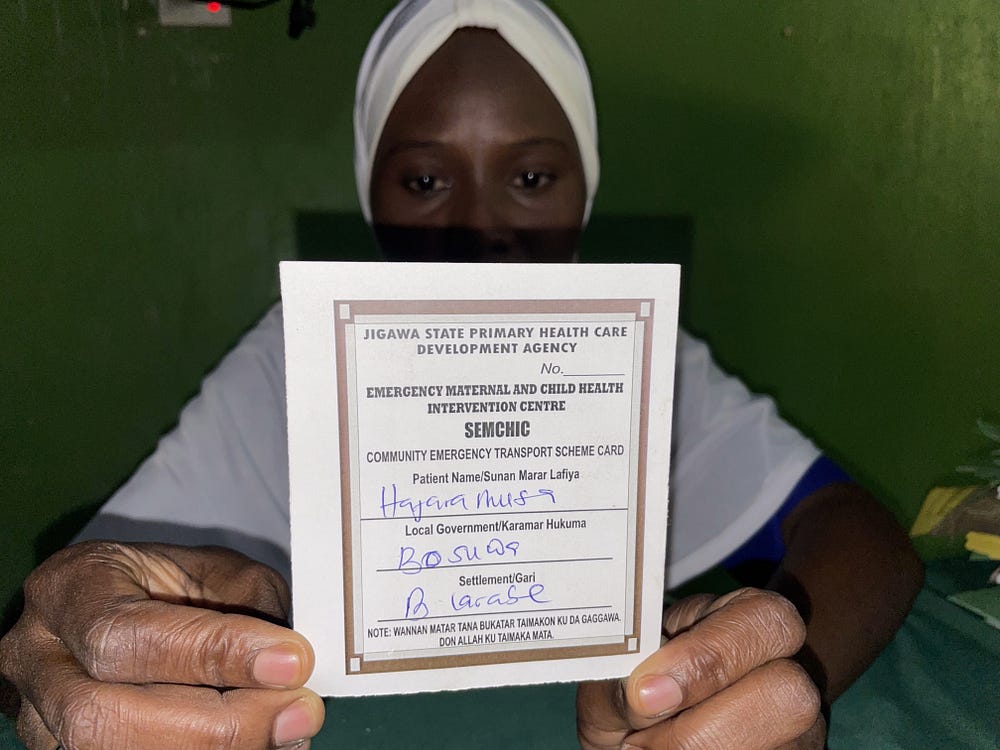 JIGAWA STATE PRIMARY HEALTH CARE
DEVELOPMENT AGENCY
No.______
EMERGENCY MATERNAL AND CHILD HEALTH
INTERVENTION CENTRE
SEMCHIC
COMMUNITY EMERGENCY TRANSPORT SCHEME CARD
Patient Name/Sunan Marar Lafiya
Hajara Musa
Local Government/Karamar Hukuma
Settlement/Gari
B
NOTE: WANNAN MATAR TANA BUKATAR TAIMAKON KU DA GAGGAWA.
DON ALLAH KU TAIMAKA MATA.